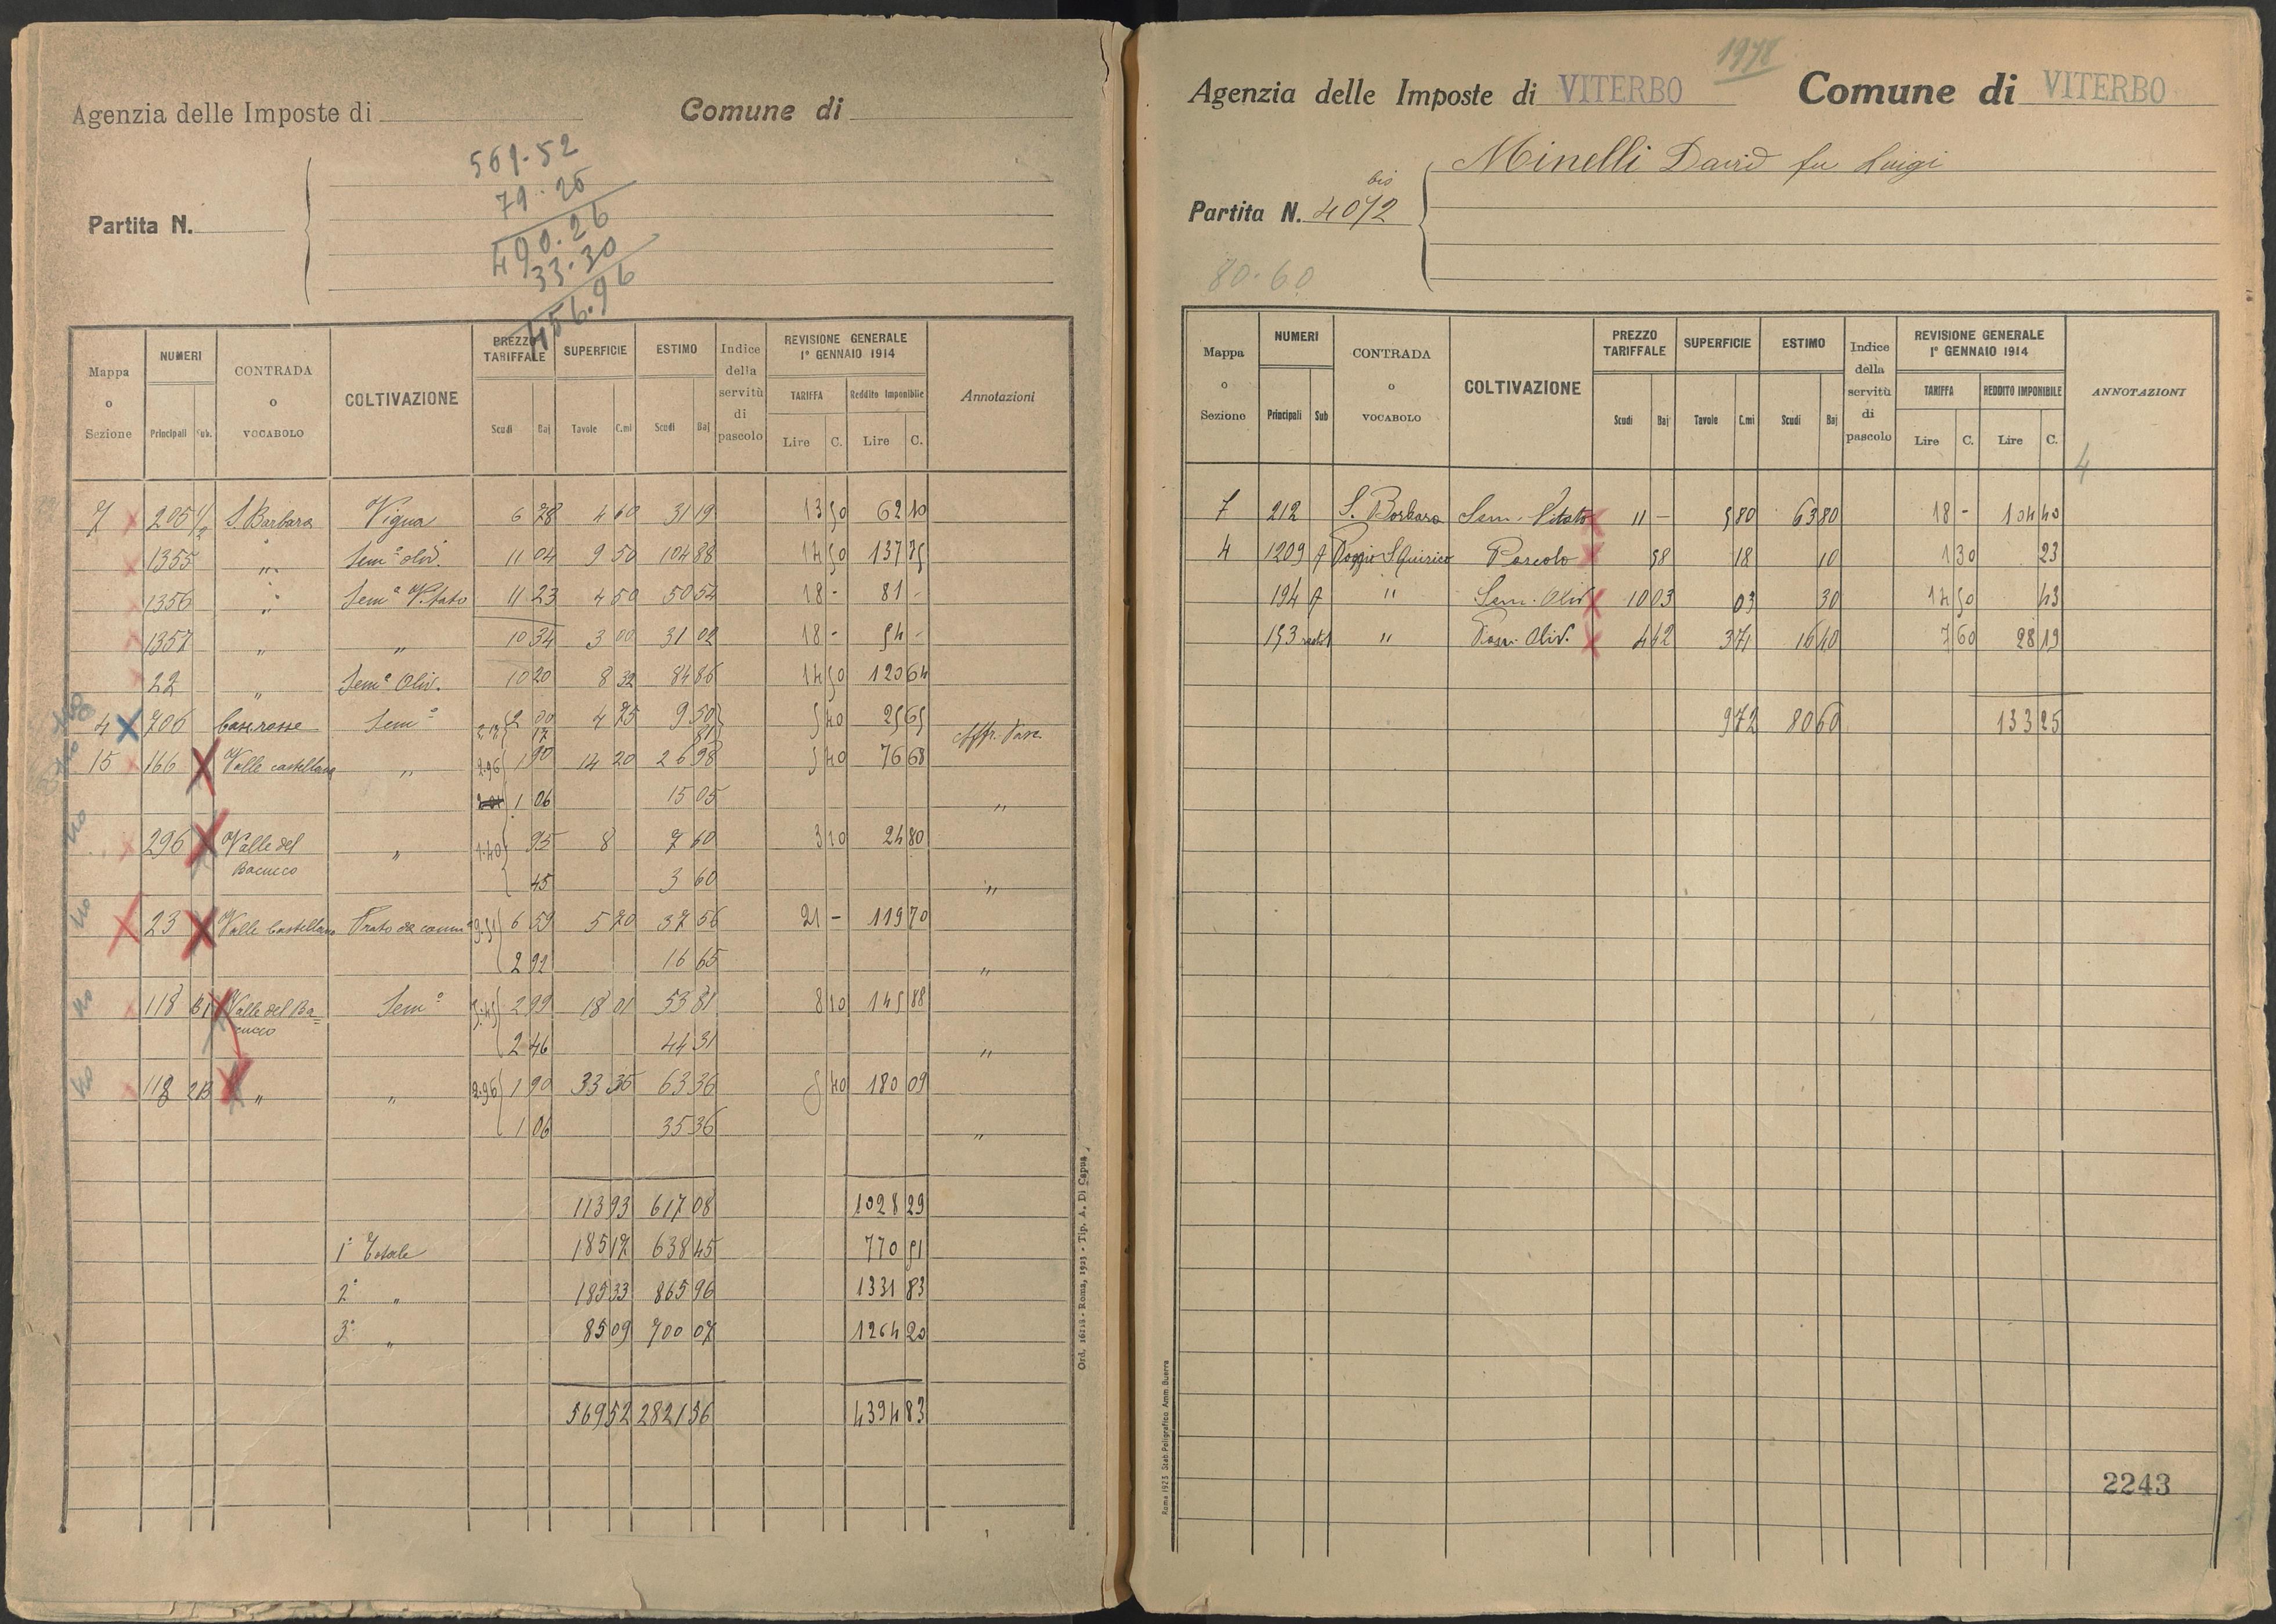 Agenzia delle Imposte di
Comune di
Partita N.
569.52
79.26
490.26
33.30
456.96
Mappa o Sezione
NUMERI
Principali Sub.
CONTRADA o VOCABOLO
COLTIVAZIONE
PREZZO TARIFFALE
Scudi Baj
SUPERFICIE
Tavole C.mi
ESTIMO
Scudi Baj
Indice della servitù di pascolo
REVISIONE GENERALE 1° GENNAIO 1914
TARIFFA
Lire C.
Reddito Imponibile
Lire C.
Annotazioni
7 205 1/2 S. Barbara Vigna 6 78 4 60 31 19 13 50 62 10
1355 " Sem° oliv. 11 04 9 50 104 88 14 50 137 75
1356 " Sem° Vitato 11 23 4 50 50 54 18 - 81 -
1357 " " 10 34 3 00 31 02 18 - 54 -
22 " Sem° Oliv. 10 20 8 32 84 86 14 50 120 64
4 706 Case rosse Sem° 2 00 4 75 9 50 5 40 25 65
17 81
15 166 Valle castellana " 2.96 1 90 14 20 26 98 5 40 76 68
1 06 15 05 "
296 Valle del Bacucco " 1.40 95 8 7 60 3 10 24 80
45 3 60 "
23 Valle Castellana Prato 9.51 6 59 5 70 37 56 21 - 119 70
2 92 16 65 "
118 B1 Valle del Ba=
cucco Sem° 5.45 2 99 18 01 53 81 8 10 145 88
2 46 44 31 "
118 2B " " 2.96 1 90 33 35 63 36 5 40 180 09
1 06 35 36 "
113 93 617 08 1028 29
1° Totale 185 17 638 45 770 51
2° " 185 33 865 96 1331 83
3° " 85 09 700 07 1264 20
569 52 2821 56 4394 83
Ord. - Roma, 1923 - Tip. A. Di Capua
1978
Agenzia delle Imposte di VITERBO
Comune di VITERBO
Minelli David fu Luigi
bis
Partita N. 4072
80.60
Mappa o Sezione
NUMERI
Principali Sub
CONTRADA o VOCABOLO
COLTIVAZIONE
PREZZO TARIFFALE
Scudi Baj
SUPERFICIE
Tavole C.mi
ESTIMO
Scudi Baj
Indice della servitù di pascolo
REVISIONE GENERALE 1° GENNAIO 1914
TARIFFA
Lire C.
REDDITO IMPONIBILE
Lire C.
ANNOTAZIONI
4
7 212 S. Barbara Sem. Vitato 11 - 5 80 63 80 18 - 104 40
4 1209 A Poggio S Quirico Pascolo 58 18 10 1 30 23
194 A " Sem. Oliv 10 03 03 30 14 50 43
153 " Pasc. Oliv. 4 42 3 71 16 40 7 60 28 19
9 72 80 60 133 25
2243
Roma 1923 Stab Poligrafico Amm. Guerra